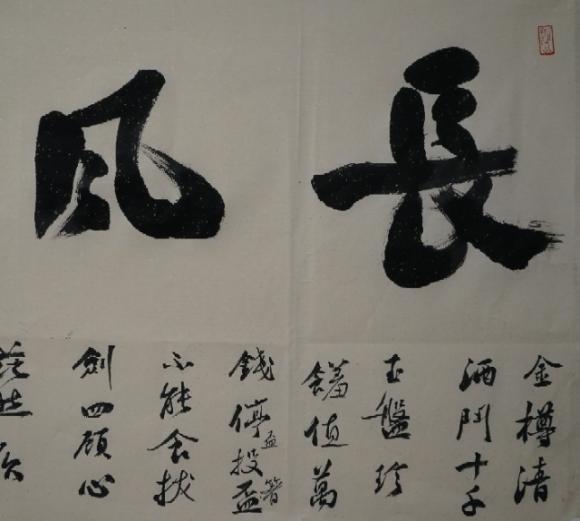 長風
金樽清
酒鬥十千
玉盤珍
饈值萬
錢停盃投盃箸
不能食拔
劍四顧心
茫然